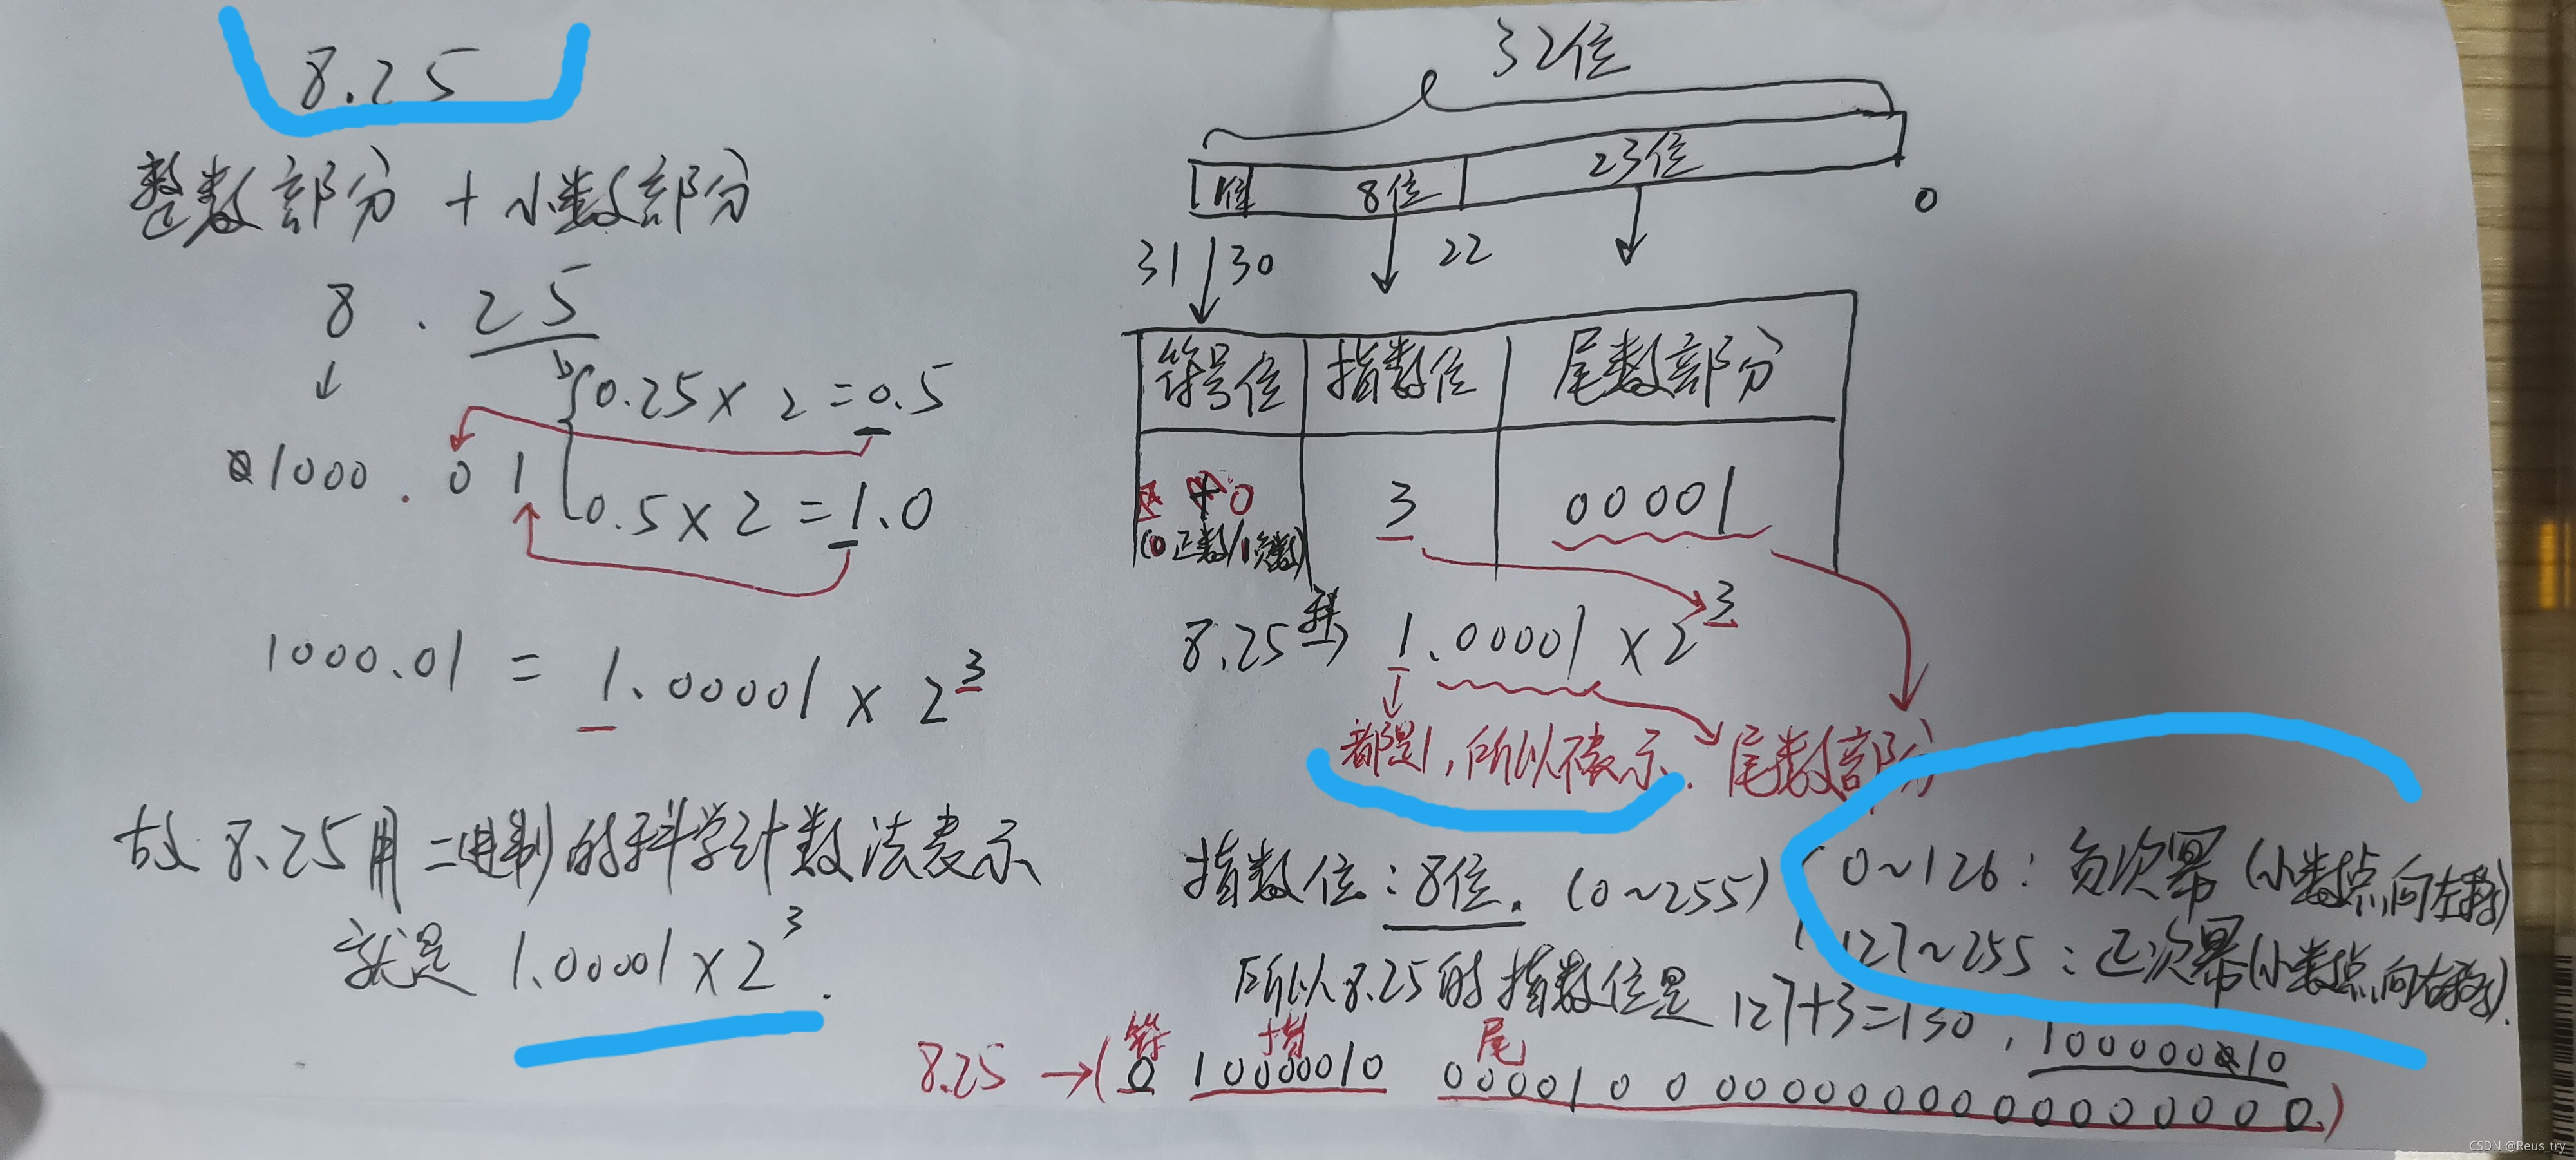 8.25
整数部分 + 小数部分
8 . 25
0.25 × 2 = 0.5
1000 . 0 1
0.5 × 2 = 1.0
1000.01 = 1.00001 × 2³
故 8.25 用二进制的科学计数法表示
就是 1.00001 × 2³.
32位
1位 8位 23位
31 30 22 0
符号位 指数位 尾数部分
0 3 00001
(0正数/1负数)
8.25 → 1.00001 × 2³
都是1,所以不表示. 尾数部分
指数位:8位. (0~255)
0~126:负次幂(小数点向左移)
127~255:正次幂(小数点向右移).
所以8.25的指数位是 127+3=130, 10000010
符 指 尾
8.25 → (0 10000010 00001000000000000000000.)
CSDN @Reus_try